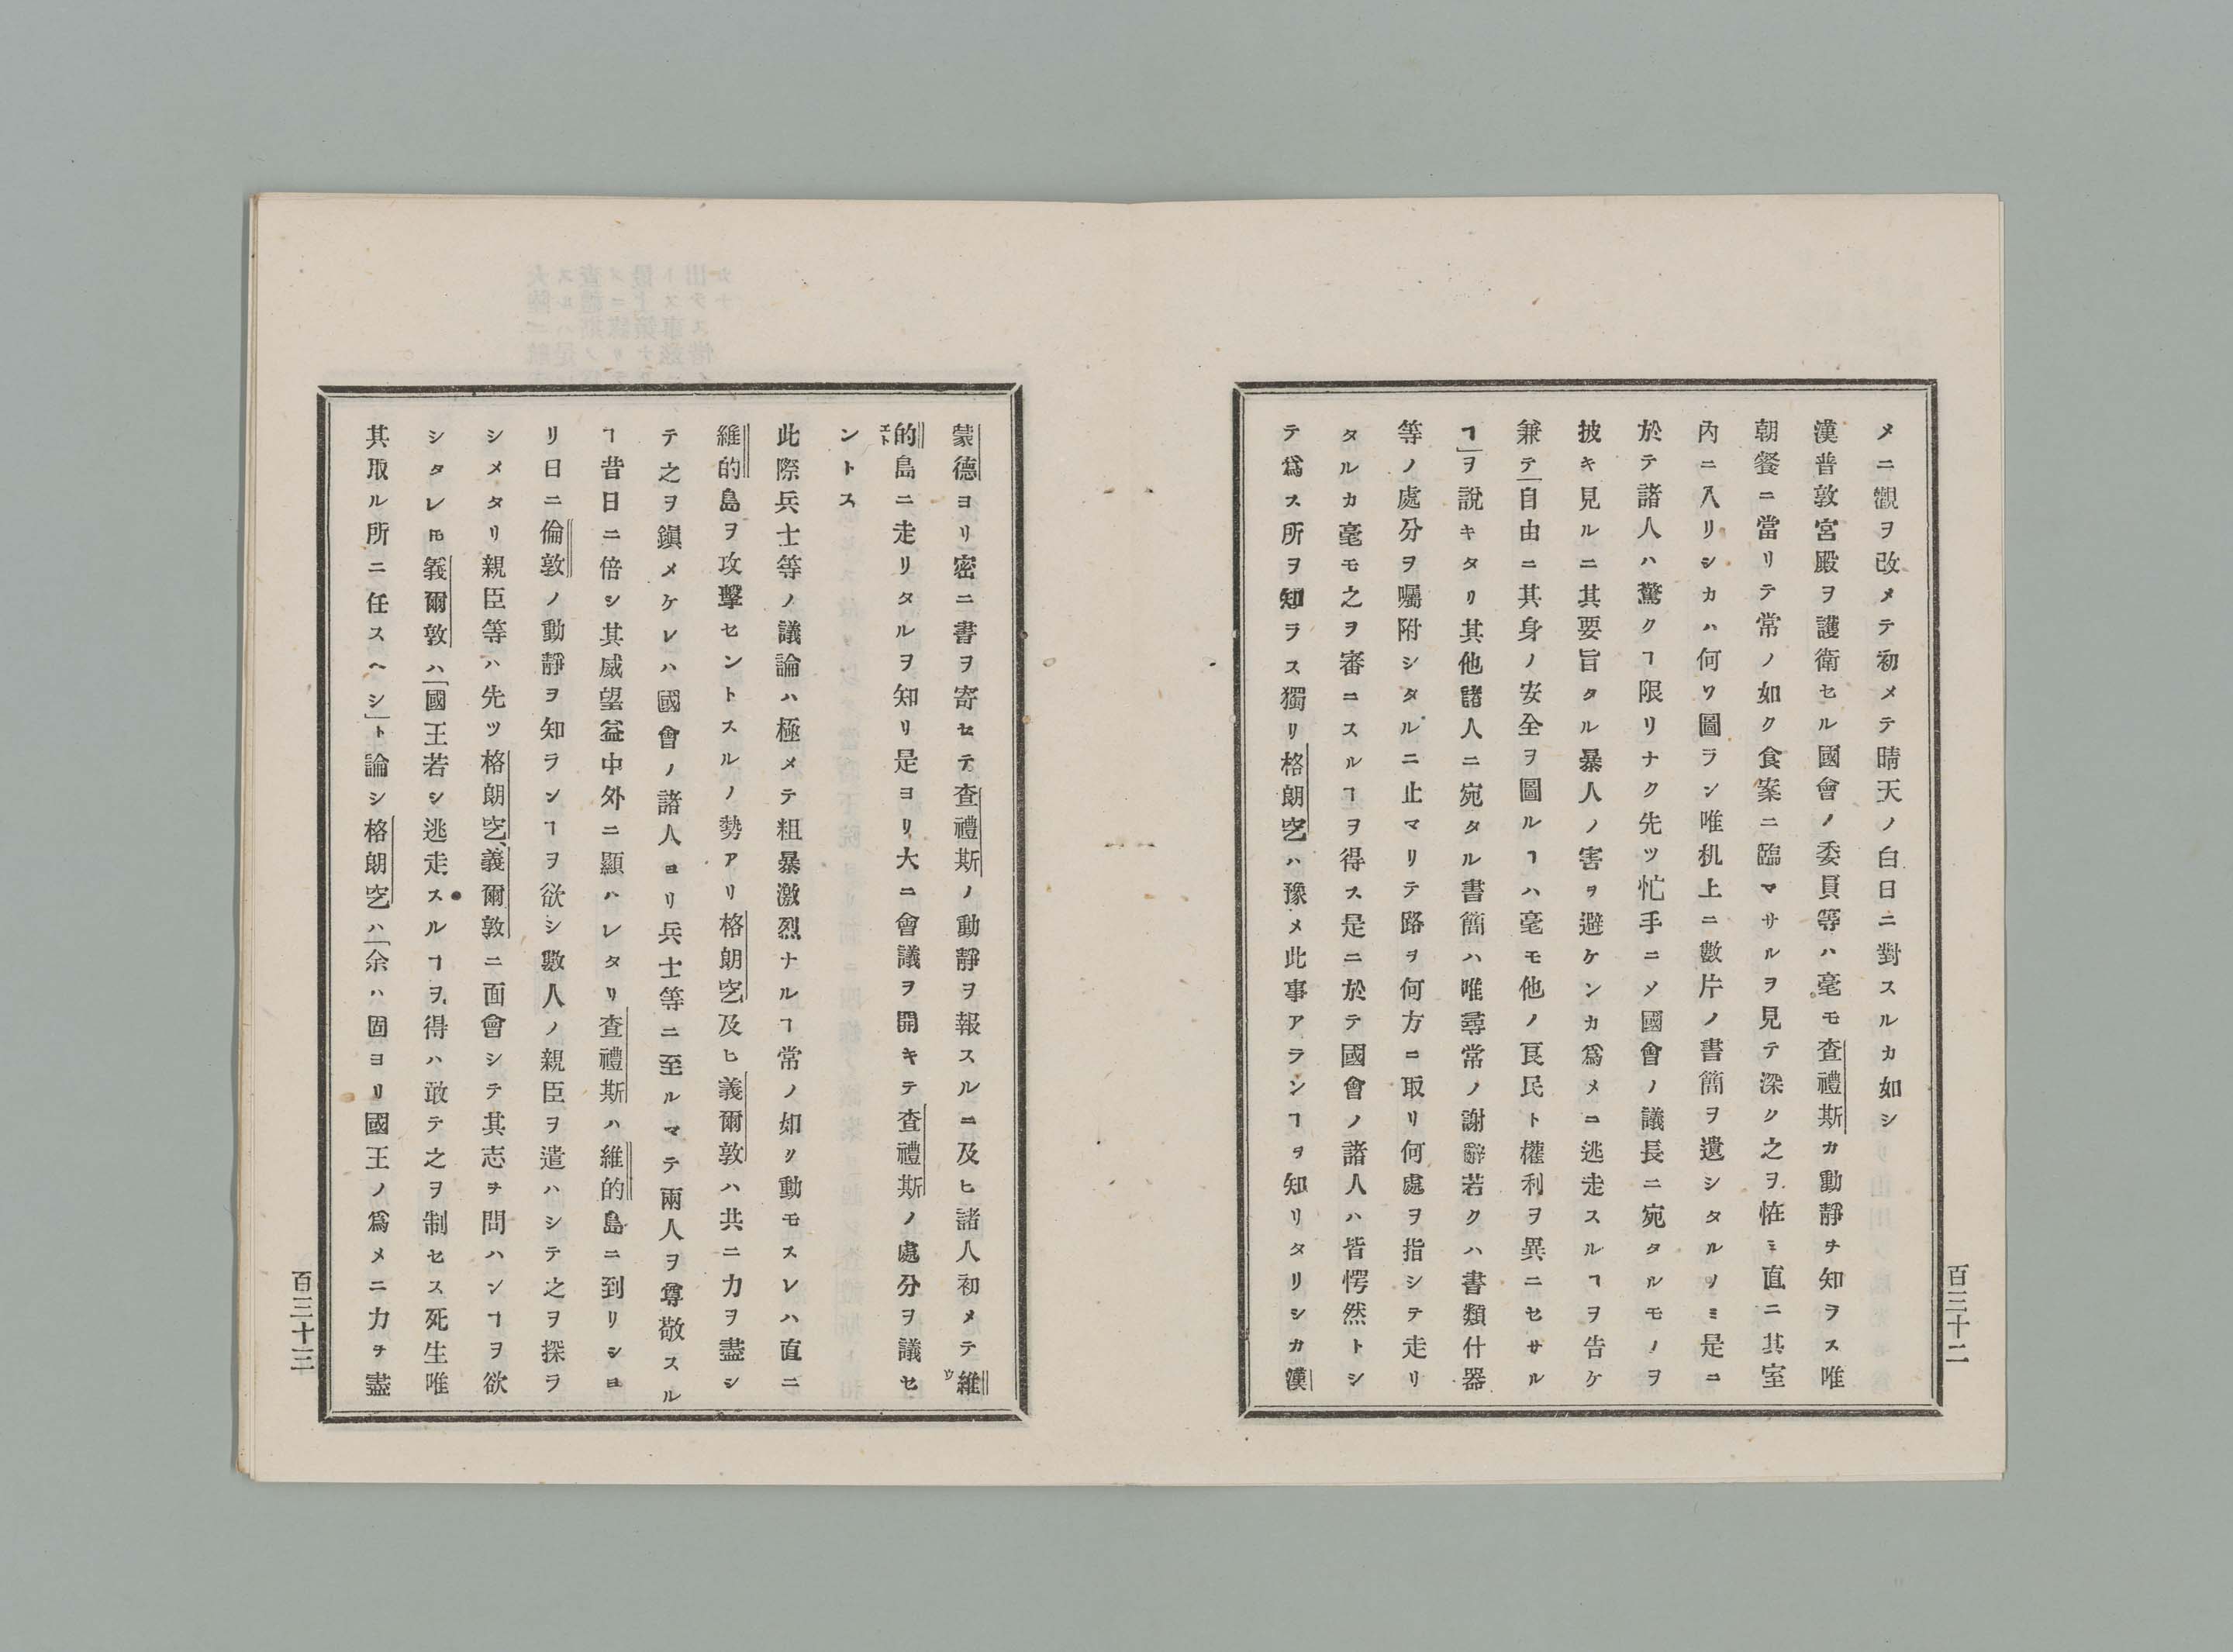 メニ觀ヲ改メテ初メテ晴天ノ白日ニ對スルカ如シ
漢普敦宮殿ヲ護衛セル國會ノ委員等ハ毫モ査禮斯カ動靜ヲ知ヲス唯
朝餐ニ當リテ常ノ如ク食案ニ臨マサルヲ見テ深ク之ヲ恠ミ直ニ其室
内ニ入リシカハ何ソ圖ラン唯机上ニ數片ノ書簡ヲ遺シタルノミ是ニ
於テ諸人ハ驚クヿ限リナク先ツ忙手ニメ國會ノ議長ニ宛タルモノヲ
披キ見ルニ其要旨タル暴人ノ害ヲ避ケンカ爲メニ逃走スルヿヲ告ケ
兼テ「自由ニ其身ノ安全ヲ圖ルヿハ毫モ他ノ良民ト權利ヲ異ニセサル
ヿ」ヲ說キタリ其他諸人ニ宛タル書簡ハ唯尋常ノ謝辭若クハ書類什器
等ノ處分ヲ囑附シタルニ止マリテ路ヲ何方ニ取リ何處ヲ指シテ走リ
タルカ毫モ之ヲ審ニスルヿヲ得ス是ニ於テ國會ノ諸人ハ皆愕然トシ
テ爲ス所ヲ知ラス獨リ格朗空ハ豫メ此事アランヿヲ知リタリシカ漢
百三十二
蒙德ヨリ密ニ書ヲ寄セテ査禮斯ノ動靜ヲ報スルニ及ヒ諸人初メテ維
的島ニ走リタルヲ知リ是ヨリ大ニ會議ヲ開キテ査禮斯ノ處分ヲ議セ
ントス
此際兵士等ノ議論ハ極メテ粗暴激烈ナルヿ常ノ如ク動モスレハ直ニ
維的島ヲ攻擊セントスルノ勢アリ格朗空及ヒ義爾敦ハ共ニ力ヲ盡シ
テ之ヲ鎭メケレハ國會ノ諸人ヨリ兵士等ニ至ルマテ兩人ヲ尊敬スル
ヿ昔日ニ倍シ其威望益中外ニ顯ハレタリ査禮斯ハ維的島ニ到リシヨ
リ日ニ倫敦ノ動靜ヲ知ランヿヲ欲シ數人ノ親臣ヲ遣ハシテ之ヲ探ラ
シメタリ親臣等ハ先ツ格朗空、義爾敦ニ面會シテ其志ヲ問ハンヿヲ欲
シタレ𪜈義爾敦ハ「國王若シ逃走スルヿヲ得ハ敢テ之ヲ制セス死生唯
其取ル所ニ任スヘシ」ト論シ格朗空ハ「余ハ固ヨリ國王ノ爲メニ力ヲ盡
百三十三